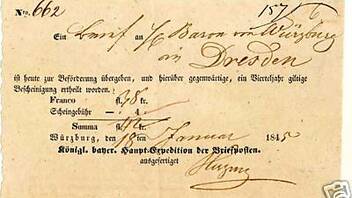 Nro. 662
157/6
Ein Brief an Baron von Würzburg
in Dresden
ist heute zur Beförderung übergeben, und hierüber gegenwärtige, ein Vierteljahr giltige
Bescheinigung ertheilt worden.
Franco fl. 48 kr.
Scheingebühr — 4
Summa
Würzburg, den 18 Januar 1845
Königl. bayer. Haupt-Expedition der Briefposten.
ausgefertiget